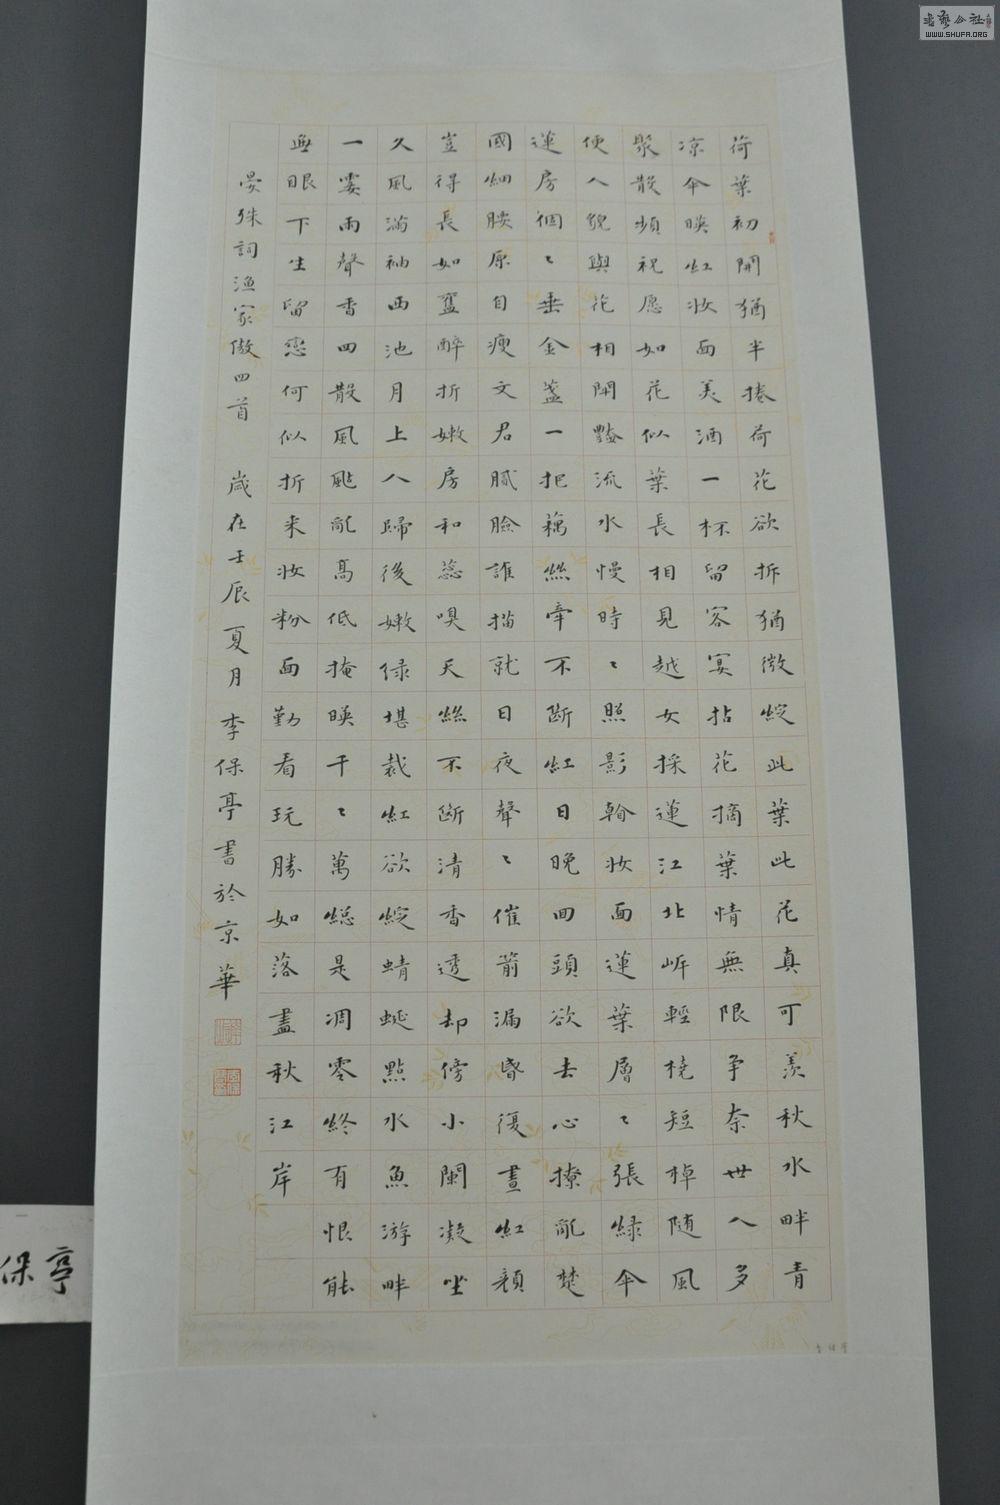 荷葉初開猶半捲荷花欲拆猶微綻此葉此花真可羨秋水畔青
凉伞暎紅妝面美酒一杯留客宴拈花摘葉情無限争奈世人多
聚散頻祝愿如花似葉長相見越女採蓮江北岍輕橈短棹随風
便人貌與花相鬭豔流水慢時〻照影翰妝面蓮葉層〻張緑伞
蓮房個〻垂金盞一把藕絲牽不斷紅日晚回頭欲去心撩亂楚
國細腰原自瘦文君膩臉誰描就日夜聲〻催箭漏昏復晝紅顔
豈得長如舊醉折嫩房和蕊嗅天絲不斷清香透却傍小闌凝坐
久風滿袖西池月上人歸後嫩緑堪裁紅欲綻蜻蜓點水魚游畔
一霎雨聲香四散風颭亂高低掩暎千〻萬總是凋零終有恨能
無眼下生留戀何似折来妝粉面勤看玩勝如落盡秋江岸
晏殊詞漁家傲四首 歲在壬辰夏月李保亭書於京華
保亭
WWW.SHUFA.ORG